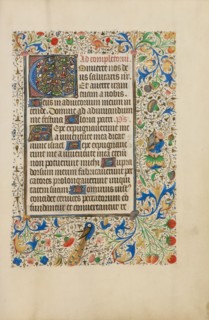 Ad completorium
Converte nos de
us salutaris nr̄.
Et averte iram
tuam a nobis.
Deus in adiutorium meum in
tende. Domine ad adiuvandum
me festina. Gloria patri. ps̄
Sepe expugnaverunt me
a iuventute mea dicat
nunc israel. Sepe expugnave
runt me a iuventute mea etenim
non potuerunt michi. Supra
dorsum meum fabricaverunt pec
catores prolongaverunt iniqui
tatem suam. Dominus iust
concidet cervices peccatorum co
fundantur et convertantur re